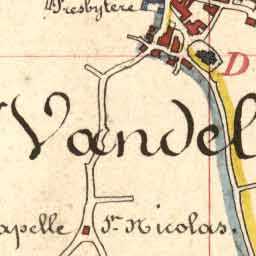 Presbytère
D
Vandel
apelle St. Nicolas.